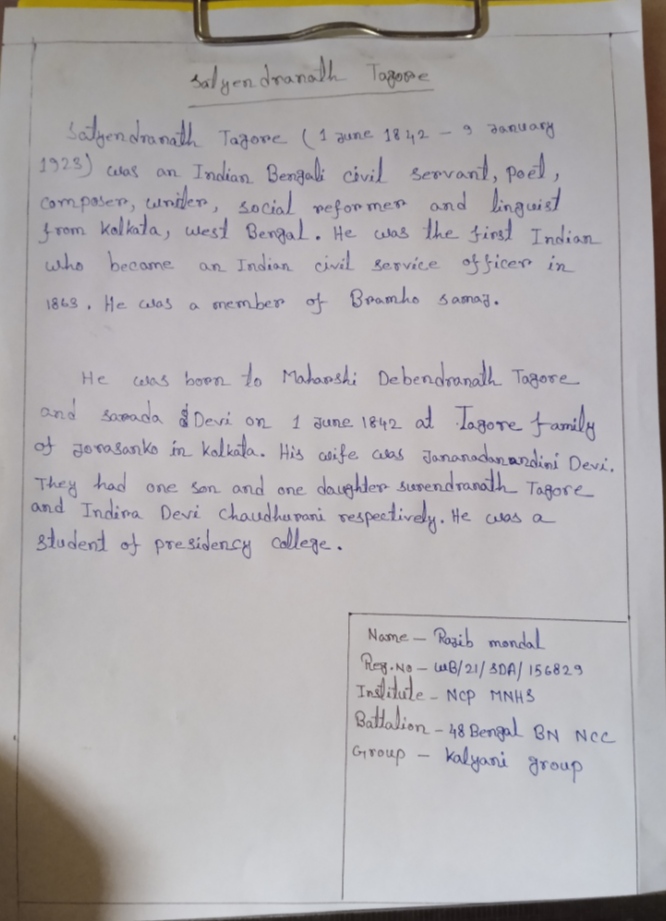 Satyendranath Tagore
Satyendranath Tagore (1 June 1842 - 9 January
1923) was an Indian Bengali civil servant, poet,
composer, writer, social reformer and linguist
from Kolkata, West Bengal. He was the first Indian
who became an Indian civil service officer in
1863. He was a member of Bramho samaj.
He was born to Maharshi Debendranath Tagore
and sarada Devi on 1 June 1842 at Tagore family
of Jorasanko in Kolkata. His wife was Jananadanandini Devi.
They had one son and one daughter surendranath Tagore
and Indira Devi Chaudhurani respectively. He was a
student of presidency college.
Name - Razib mondal
Reg.No - WB/21/SDA/156829
Institute - NCP MNHS
Battalion - 48 Bengal BN NCC
Group - Kalyani group